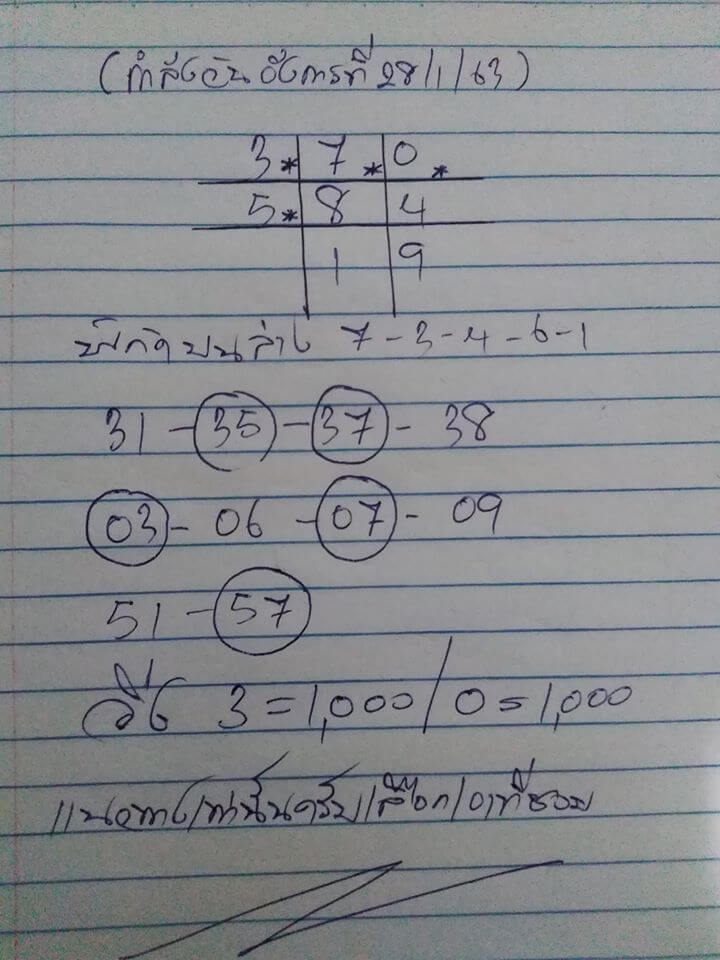 (กำลังวันอังคารที่ 28/1/63)
3* 7* 0*
5* 8 4
1 9
พิกัดบนล่าง 7-3-4-6-1
31 - 35 - 37 - 38
03 - 06 - 07 - 09
51 - 57
วิ่ง 3 = 1,000 / 0 = 1,000
แนวทางเท่านั้นครับเลือกเอาที่ชอบ